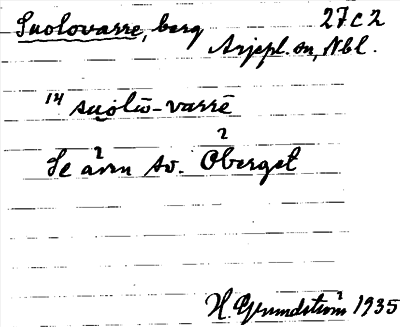 Suolovarre, berg 27c2
Arjepl. sn, Nbl.
14 suo̯lū-varrē
Se även sv. Oberget
H. Grundström 1935